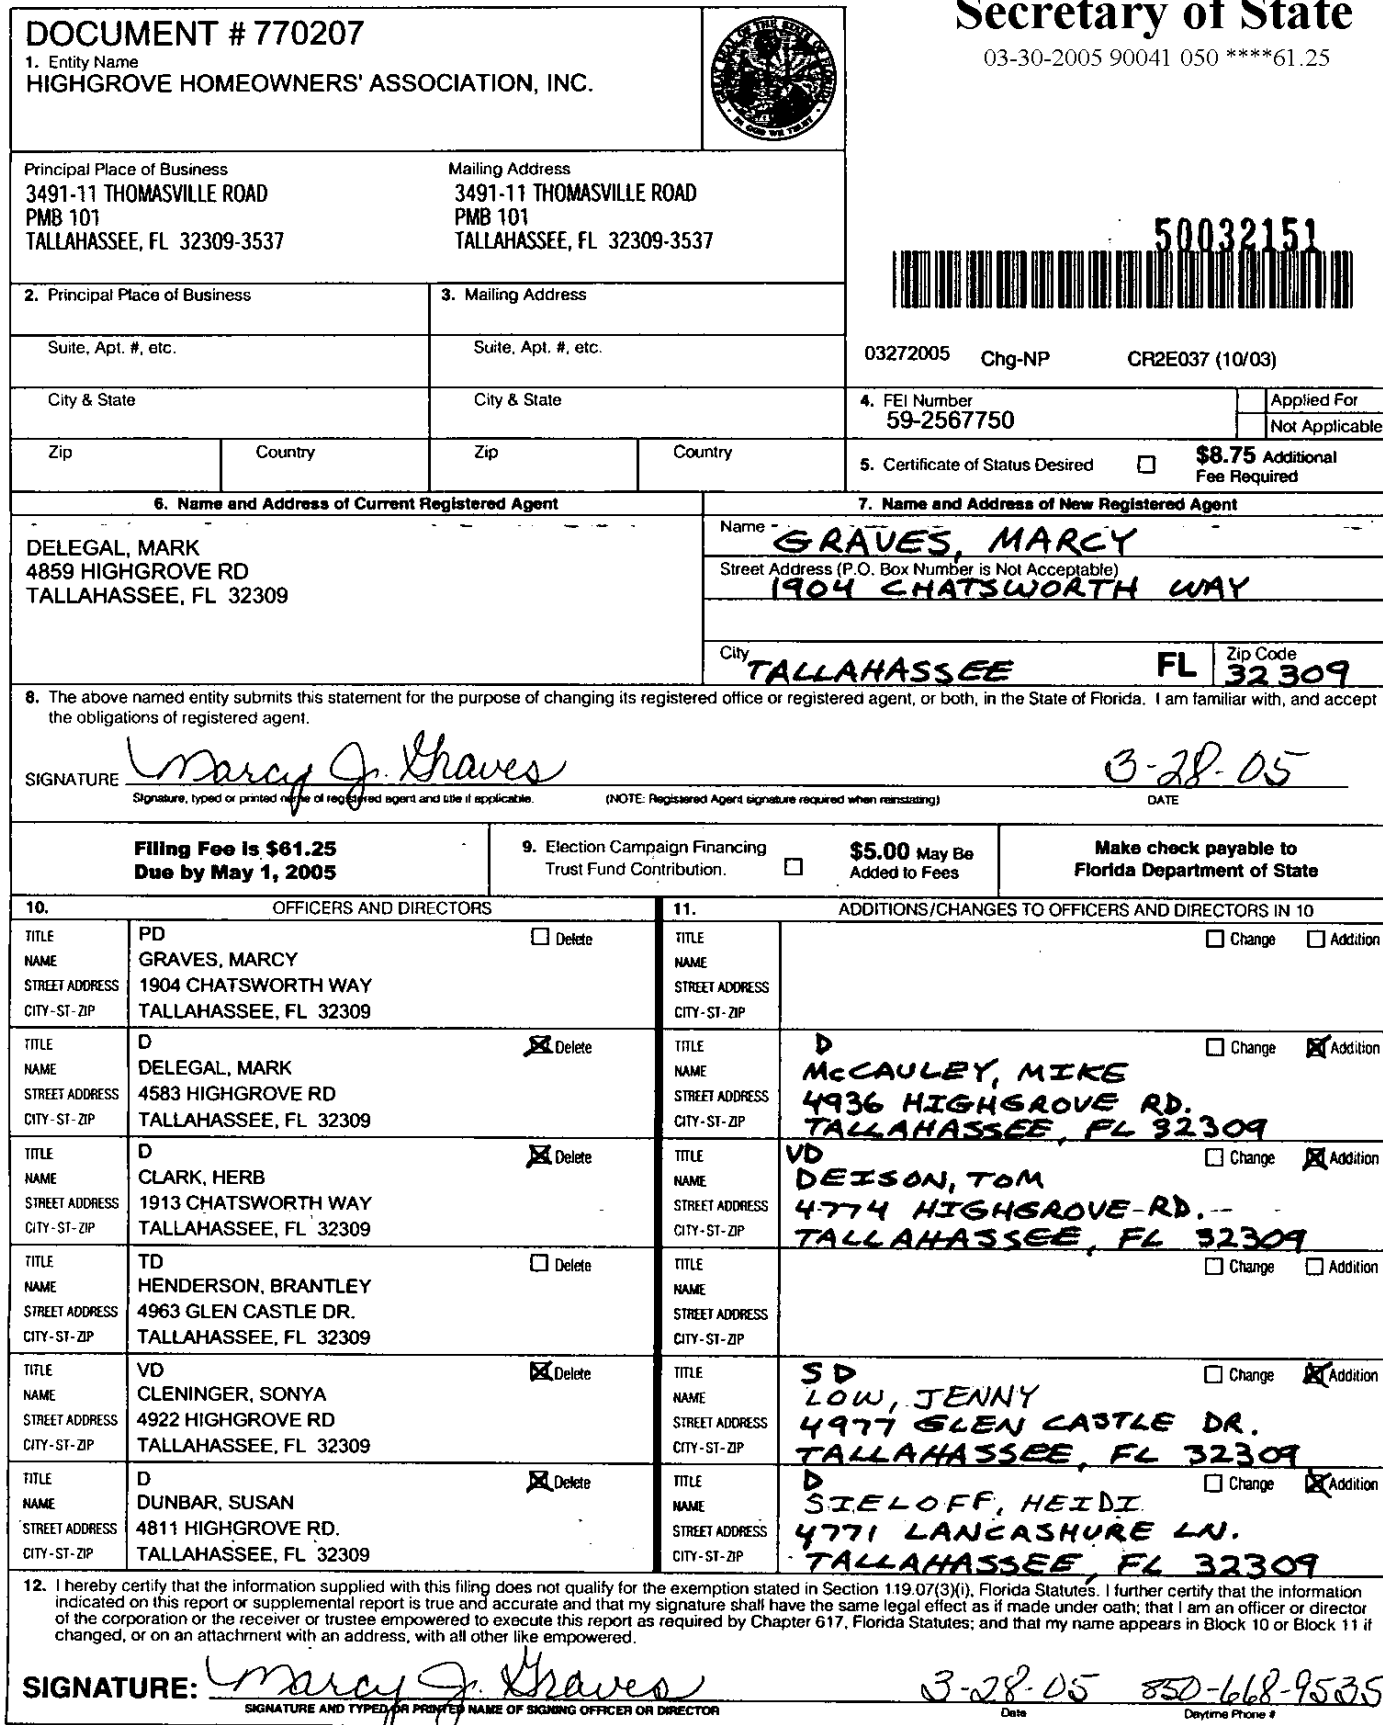 Secretary of State
03-30-2005 90041 050 ****61.25
DOCUMENT # 770207
1. Entity Name
HIGHGROVE HOMEOWNERS' ASSOCIATION, INC.
Principal Place of Business
3491-11 THOMASVILLE ROAD
PMB 101
TALLAHASSEE, FL 32309-3537
Mailing Address
3491-11 THOMASVILLE ROAD
PMB 101
TALLAHASSEE, FL 32309-3537
50032151
2. Principal Place of Business
3. Mailing Address
Suite, Apt. #, etc.
Suite, Apt. #, etc.
03272005 Chg-NP CR2E037 (10/03)
City & State
City & State
4. FEI Number
59-2567750
Applied For
Not Applicable
Zip Country
Zip Country
5. Certificate of Status Desired
$8.75 Additional
Fee Required
6. Name and Address of Current Registered Agent
DELEGAL, MARK
4859 HIGHGROVE RD
TALLAHASSEE, FL 32309
7. Name and Address of New Registered Agent
Name GRAVES, MARCY
Street Address (P.O. Box Number is Not Acceptable)
1904 CHATSWORTH WAY
City TALLAHASSEE FL Zip Code 32309
8. The above named entity submits this statement for the purpose of changing its registered office or registered agent, or both, in the State of Florida. I am familiar with, and accept
the obligations of registered agent.
SIGNATURE Marcy J. Graves 3-28-05
Signature, typed or printed name of registered agent and title if applicable. (NOTE: Registered Agent signature required when reinstating) DATE
Filing Fee is $61.25
Due by May 1, 2005
9. Election Campaign Financing
Trust Fund Contribution.
$5.00 May Be
Added to Fees
Make check payable to
Florida Department of State
10. OFFICERS AND DIRECTORS
11. ADDITIONS/CHANGES TO OFFICERS AND DIRECTORS IN 10
TITLE PD Delete
NAME GRAVES, MARCY
STREET ADDRESS 1904 CHATSWORTH WAY
CITY-ST-ZIP TALLAHASSEE, FL 32309
TITLE Change Addition
NAME
STREET ADDRESS
CITY-ST-ZIP
TITLE D Delete
NAME DELEGAL, MARK
STREET ADDRESS 4583 HIGHGROVE RD
CITY-ST-ZIP TALLAHASSEE, FL 32309
TITLE D Change Addition
NAME McCAULEY, MIKE
STREET ADDRESS 4936 HIGHGROVE RD.
CITY-ST-ZIP TALLAHASSEE, FL 32309
TITLE D Delete
NAME CLARK, HERB
STREET ADDRESS 1913 CHATSWORTH WAY
CITY-ST-ZIP TALLAHASSEE, FL 32309
TITLE VD Change Addition
NAME DEISON, TOM
STREET ADDRESS 4774 HIGHGROVE RD.
CITY-ST-ZIP TALLAHASSEE, FL 32309
TITLE TD Delete
NAME HENDERSON, BRANTLEY
STREET ADDRESS 4963 GLEN CASTLE DR.
CITY-ST-ZIP TALLAHASSEE, FL 32309
TITLE Change Addition
NAME
STREET ADDRESS
CITY-ST-ZIP
TITLE VD Delete
NAME CLENINGER, SONYA
STREET ADDRESS 4922 HIGHGROVE RD
CITY-ST-ZIP TALLAHASSEE, FL 32309
TITLE SD Change Addition
NAME LOW, JENNY
STREET ADDRESS 4977 GLEN CASTLE DR.
CITY-ST-ZIP TALLAHASSEE, FL 32309
TITLE D Delete
NAME DUNBAR, SUSAN
STREET ADDRESS 4811 HIGHGROVE RD.
CITY-ST-ZIP TALLAHASSEE, FL 32309
TITLE D Change Addition
NAME SIELOFF, HEIDI
STREET ADDRESS 4771 LANCASHURE LN.
CITY-ST-ZIP TALLAHASSEE, FL 32309
12. I hereby certify that the information supplied with this filing does not qualify for the exemption stated in Section 119.07(3)(i), Florida Statutes. I further certify that the information
indicated on this report or supplemental report is true and accurate and that my signature shall have the same legal effect as if made under oath; that I am an officer or director
of the corporation or the receiver or trustee empowered to execute this report as required by Chapter 617, Florida Statutes; and that my name appears in Block 10 or Block 11 if
changed, or on an attachment with an address, with all other like empowered.
SIGNATURE: Marcy J. Graves 3-28-05 850-668-9535
SIGNATURE AND TYPED OR PRINTED NAME OF SIGNING OFFICER OR DIRECTOR Date Daytime Phone #